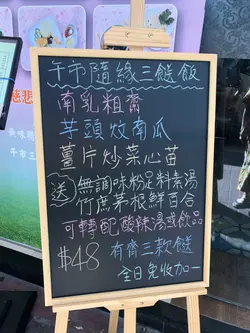 午市隨緣三餸飯
南乳粗齋
芋頭炆南瓜
薑片炒菜心苗
送 無調味粉足料素湯
竹蔗茅根鮮百合
可轉配酸辣湯或飲品
$48 有齊三款餸
全日免收加一
慈悲